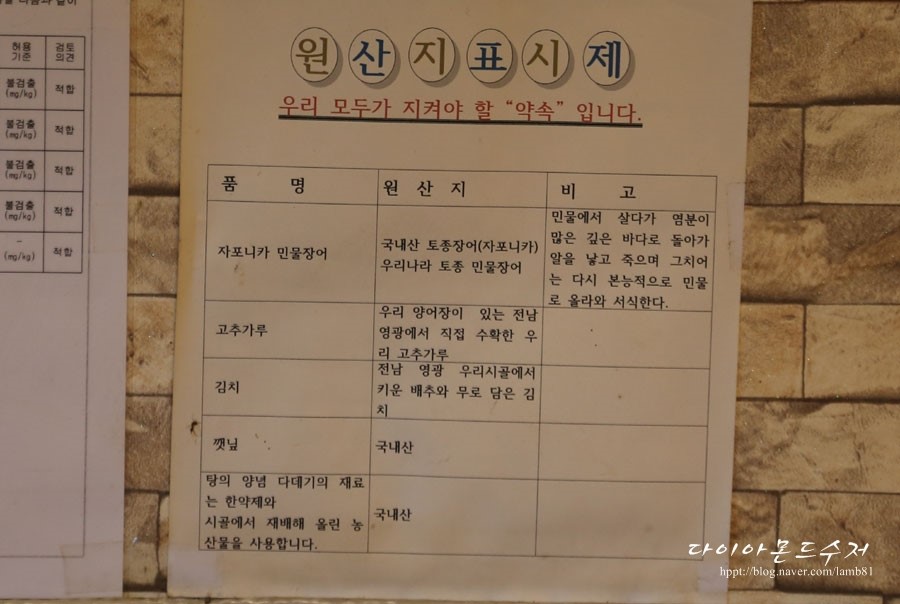 허용
기준
검토
의견
불검출
(mg/kg)
적합
불검출
(mg/kg)
적합
불검출
(mg/kg)
적합
불검출
(mg/kg)
적합
–
(mg/kg)
적합
원산지표시제
우리 모두가 지켜야 할 “약속” 입니다.
품 명
원 산 지
비 고
자포니카 민물장어
국내산 토종장어(자포니카)
우리나라 토종 민물장어
민물에서 살다가 염분이
많은 깊은 바다로 돌아가
알을 낳고 죽으며 그치어
는 다시 본능적으로 민물
로 올라와 서식한다.
고추가루
우리 양어장이 있는 전남
영광에서 직접 수확한 우
리 고추가루
김치
전남 영광 우리시골에서
키운 배추와 무로 담은 김
치
깻닢
국내산
탕의 양념 다데기의 재료
는 한약제와
시골에서 재배해 올린 농
산물을 사용합니다.
국내산
다이아몬드수저
hppt://blog.naver.com/lamb81